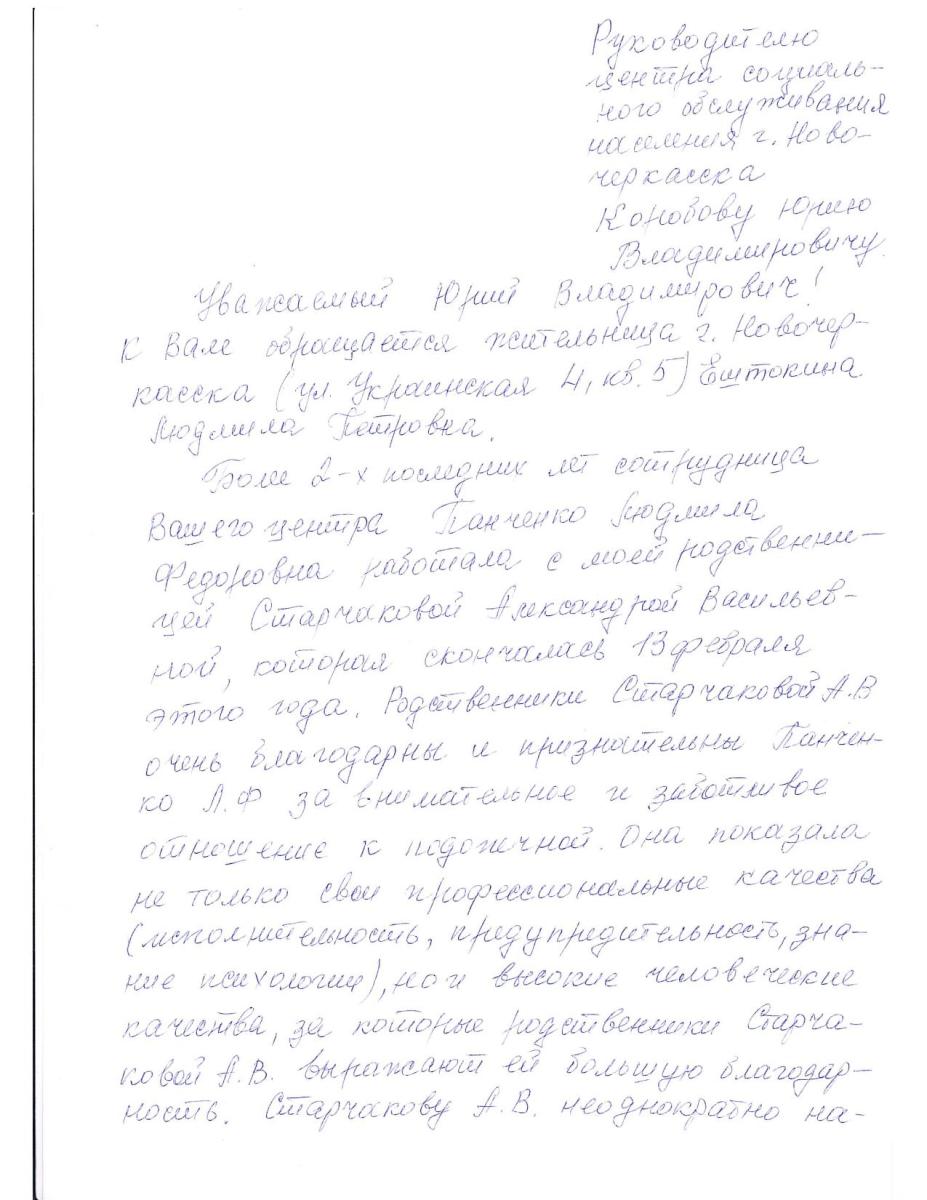 Руководителю
центра социаль-
ного обслуживания
населения г. Ново-
черкасска
Коробову Юрию
Владимировичу.
Уважаемый Юрий Владимирович!
К Вам обращается жительница г. Новочер-
касска (ул. Украинская 4, кв. 5) Ештокина
Людмила Петровна.
Более 2-х последних лет сотрудница
Вашего центра Панченко Людмила
Федоровна работала с моей родственни-
цей Старчаковой Александрой Васильев-
ной, которая скончалась 13 февраля
этого года. Родственники Старчаковой А.В
очень благодарны и признательны Панчен-
ко Л.Ф за внимательное и заботливое
отношение к подопечной. Она показала
не только свои профессиональные качества
(исполнительность, предупредительность, зна-
ние психологии), но и высокие человеческие
качества, за которые родственники Старча-
ковой А.В. выражают ей большую благодар-
ность. Старчакову А.В. неоднократно на-